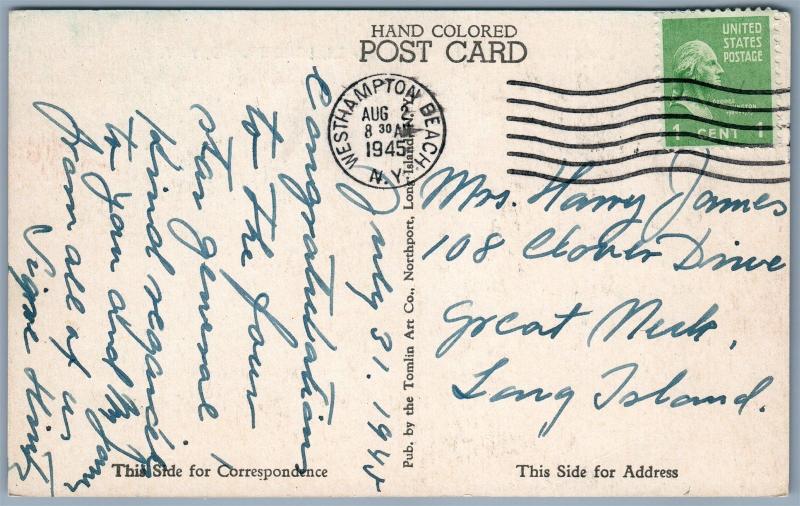 HAND COLORED
POST CARD
UNITED
STATES
POSTAGE
1 CENT 1
WESTHAMPTON BEACH
AUG 2
8 30 AM
1945
N.Y.
July 31. 1945
Congratulations
to the four
star general
Kind regards
to you and Mr James
from all of us
Pub. by the Tomlin Art Co., Northport, Long Island, N.Y.
Mrs. Harry James
108 Clover Drive
Great Neck,
Long Island.
This Side for Correspondence
This Side for Address